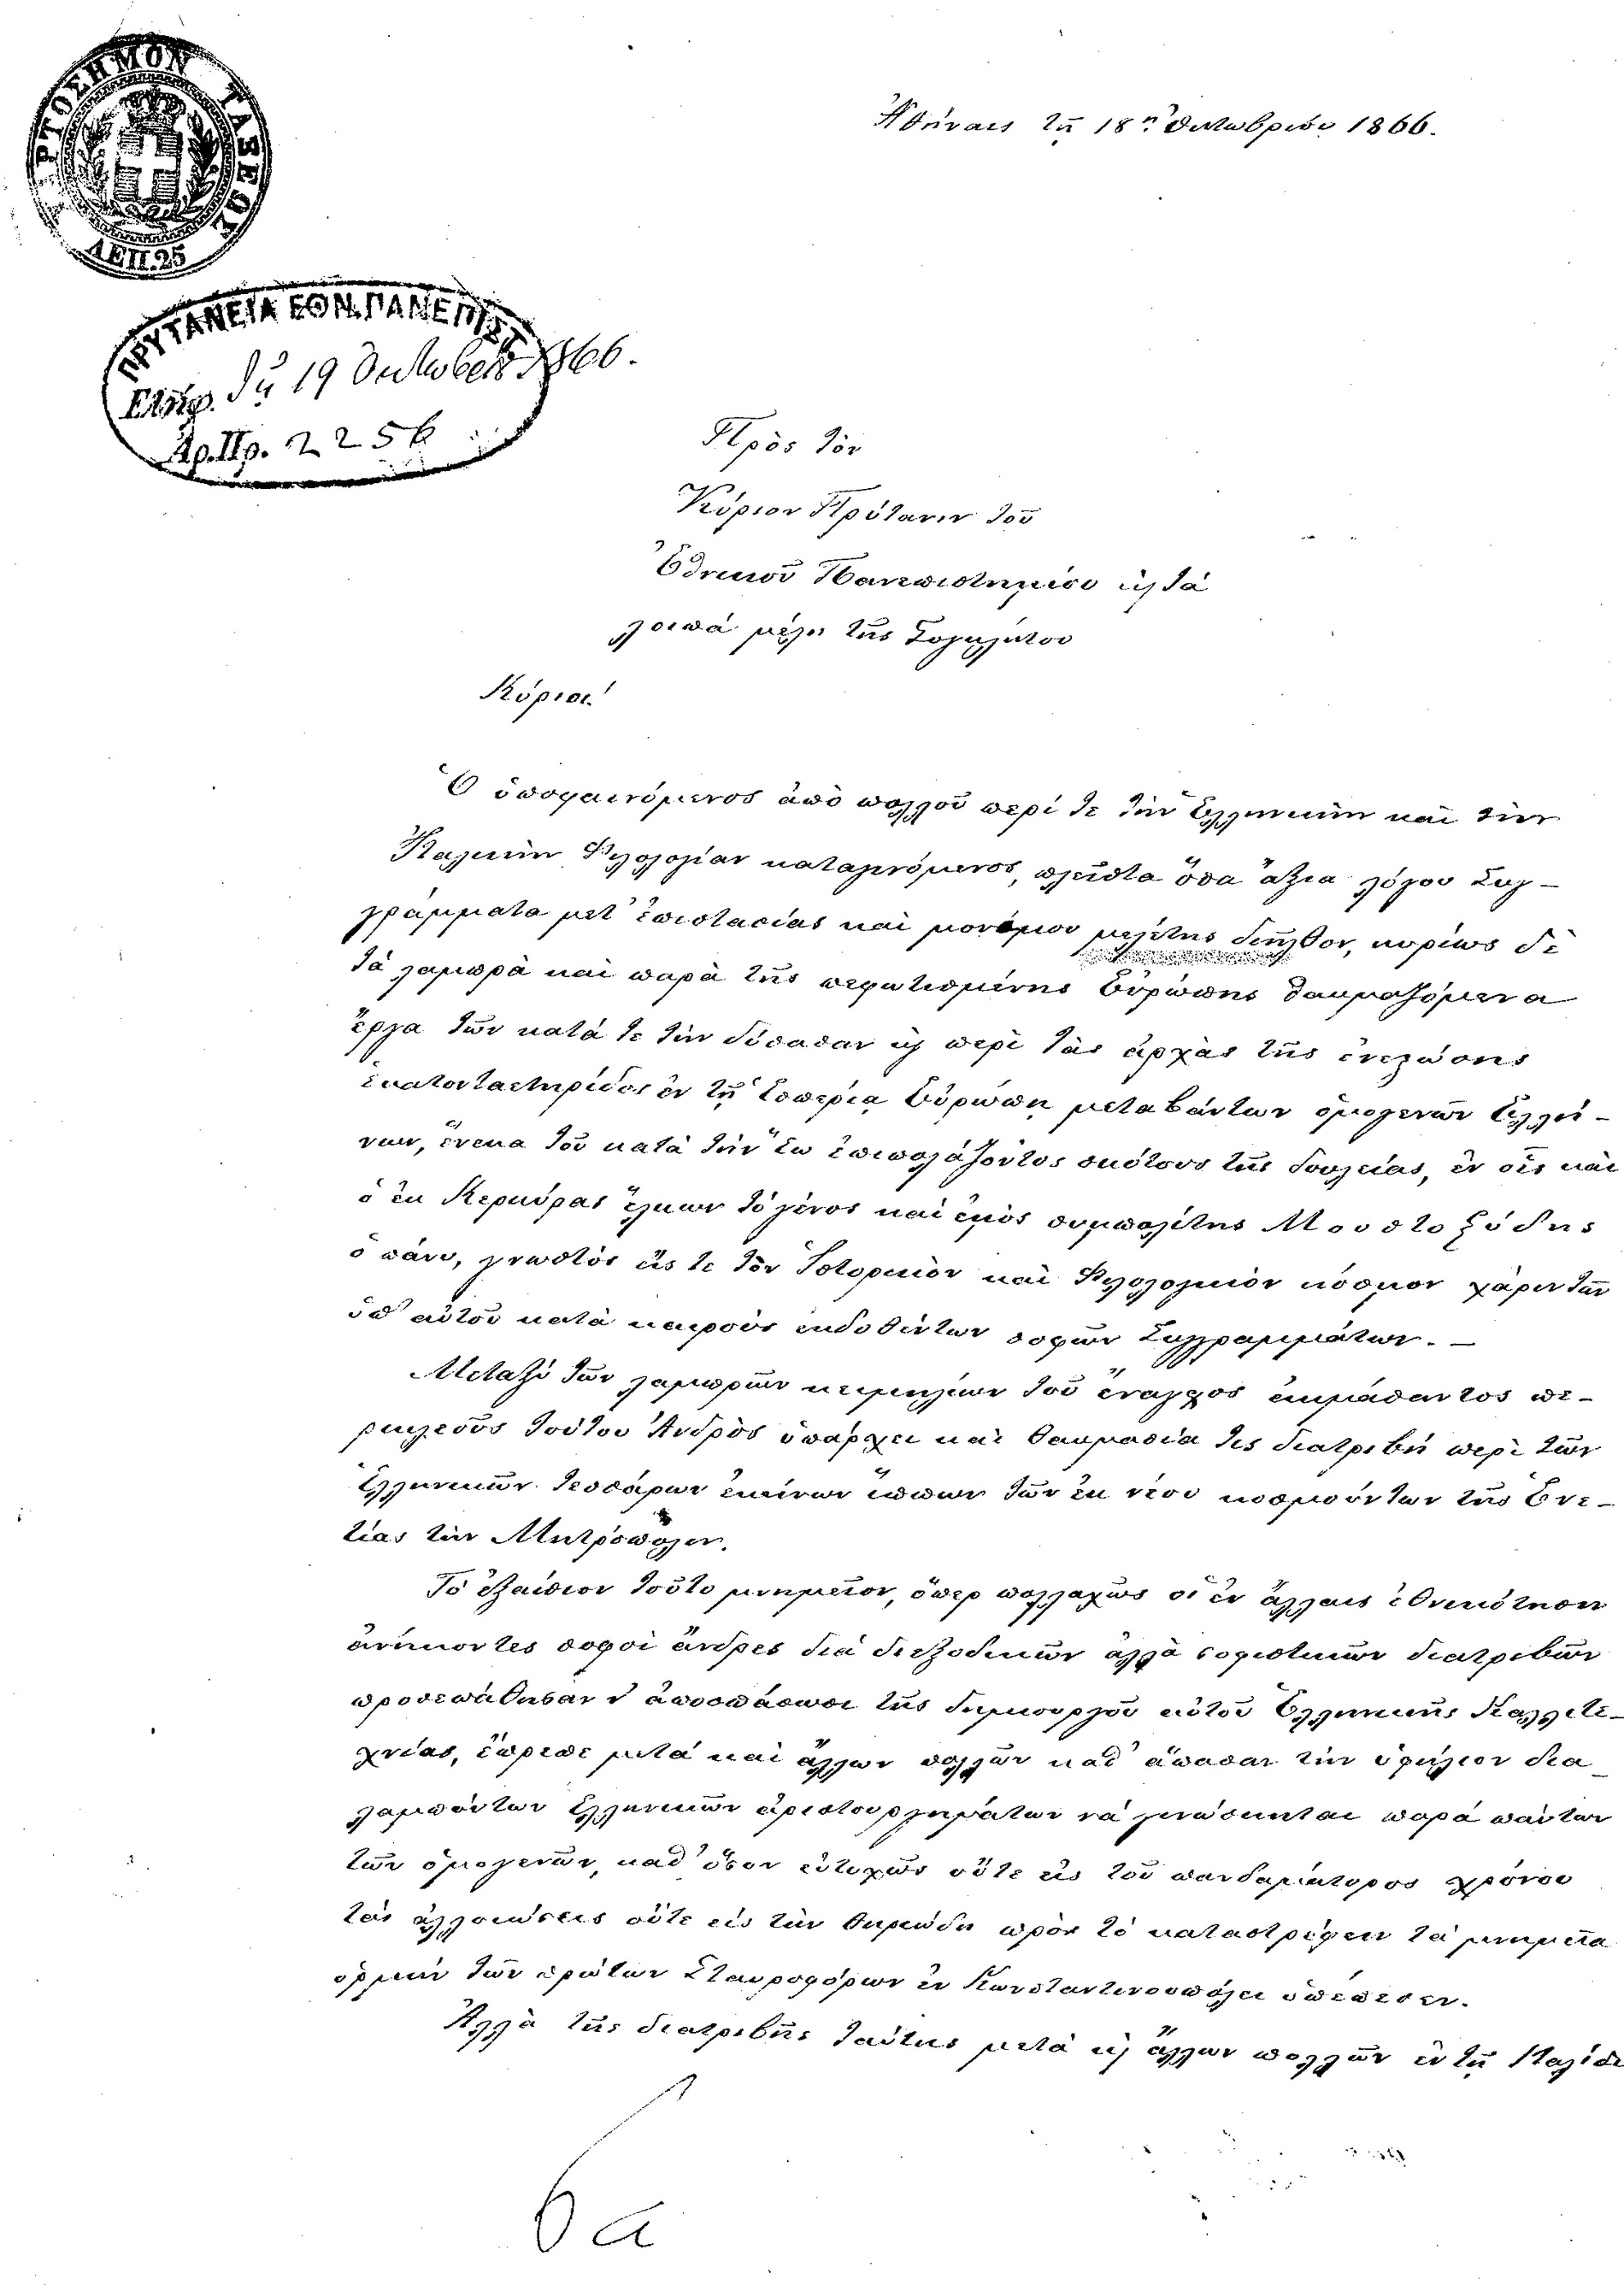 ΧΑΡΤΟΣΗΜΟΝ ΤΑΞΕΩΣ
ΛΕΠ. 25
Ἀθήναις τῇ 18ῃ Ὀκτωβρίου 1866.
ΠΡΥΤΑΝΕΙΑ ΤΟΥ ΠΑΝΕΠΙΣΤ
Ἐλήφ. τῇ 19 Ὀκτωβρίου 1866.
Ἀρ. Πρ. 2256
Πρὸς τὸν
Κύριον Πρύτανιν τοῦ
Ἐθνικοῦ Πανεπιστημίου ϗ τὰ
λοιπὰ μέλη τῆς Συγκλήτου
Κύριοι!
Ὁ ὑποφαινόμενος ἀπὸ πολλοῦ περί τε τὴν Ἑλληνικὴν καὶ τὴν
Ἰταλικὴν Φιλολογίαν καταγινόμενος, πλεῖστα ὅσα ἄξια λόγου Συγ-
γράμματα μετ' ἐπιστασίας καὶ μονίμου μελέτης διῆλθον, κυρίως δὲ
τὰ λαμπρὰ καὶ παρὰ τῆς πεφωτισμένης Εὐρώπης θαυμαζόμενα
ἔργα τῶν κατά τε τὴν λήξασαν ϗ περὶ τὰς ἀρχὰς τῆς ἐνεστώσης
ἑκατονταετηρίδος ἐν τῇ Ἑσπερίᾳ Εὐρώπῃ μεταβάντων ὁμογενῶν Ἑλλή-
νων, ἕνεκα τοῦ κατὰ τὴν Ἕω ἐπιπολάζοντος σκότους τῆς δουλείας, ἐν οἷς καὶ
ὁ ἐκ Κερκύρας ἕλκων τὸ γένος καὶ ἐμὸς συμπολίτης Μουστοξύδης
ὁ πάνυ, γνωστὸς εἴς τε τὸν Ἱστορικὸν καὶ Φιλολογικὸν κόσμον χάριν τῶν
ὑπ' αὐτοῦ κατὰ καιροὺς ἐκδοθέντων σοφῶν Συγγραμμάτων. —
Μεταξὺ τῶν λαμπρῶν κειμηλίων τοῦ ἔναγχος ἀκμάσαντος πε-
ρικλεοῦς τούτου Ἀνδρὸς ὑπάρχει καὶ θαυμασία τις διατριβὴ περὶ τῶν
Ἑλληνικῶν τεσσάρων ἐκείνων ἵππων τῶν ἐκ νέου κοσμούντων τῆς Ἑνε-
τίας τὴν Μητρόπολιν.
Τὸ ἐξαίσιον τοῦτο μνημεῖον, ὅπερ πολλαχῶς οἱ ἐν ἄλλαις ἐθνικότησιν
ἀνήκοντες σοφοὶ ἄνδρες διὰ διεξοδικῶν ἀλλὰ σοφιστικῶν διατριβῶν
προσεπάθησαν ν' ἀποσπάσωσι τῆς δημιουργοῦ αὐτοῦ Ἑλληνικῆς Καλλιτε-
χνίας, ἔπρεπε μετὰ καὶ ἄλλων πολλῶν καθ' ἅπασαν τὴν ὑφήλιον δια-
λαμπόντων Ἑλληνικῶν ἀριστουργημάτων νὰ γινώσκηται παρὰ πάντων
τῶν ὁμογενῶν, καθ' ὅσον εὐτυχῶς οὔτε εἰς τοῦ πανδαμάτορος χρόνου
τὰς ἀλλοιώσεις οὔτε εἰς τὴν θηριώδη πρὸς τὸ καταστρέφειν τὰ μνημεῖα
ὁρμὴν τῶν πρώτων Σταυροφόρων ἐν Κωνσταντινουπόλει ὑπέπεσεν.
Ἀλλὰ τῆς διατριβῆς ταύτης μετὰ ϗ ἄλλων πολλῶν ἐν τῇ Ἰταλίδι
6α